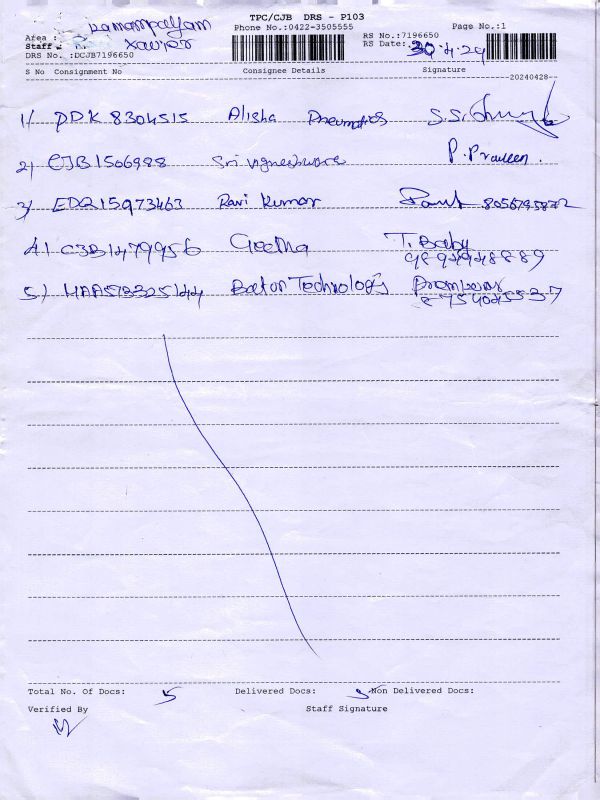 TPC/CJB DRS - P103
Phone No.:0422-3505555
Page No.:1
Area :
Xavier
Staff :
RS No.:7196650
RS Date: 30.4.24
DRS No. :DCJB7196650
S No Consignment No Consignee Details Signature
--20240428--
1) PDK 8304515 Alisha Pneumatics
2) CJB1506988 Sri vigneshwara P. Praveen.
3) EDQ15973463 Ravi Kumar 8056795872
4) CJB1479956 Geetha T. Baby
9894948889
5) Baton Technologis
Total No. Of Docs: 5 Delivered Docs: 5 Non Delivered Docs:
Verified By Staff Signature